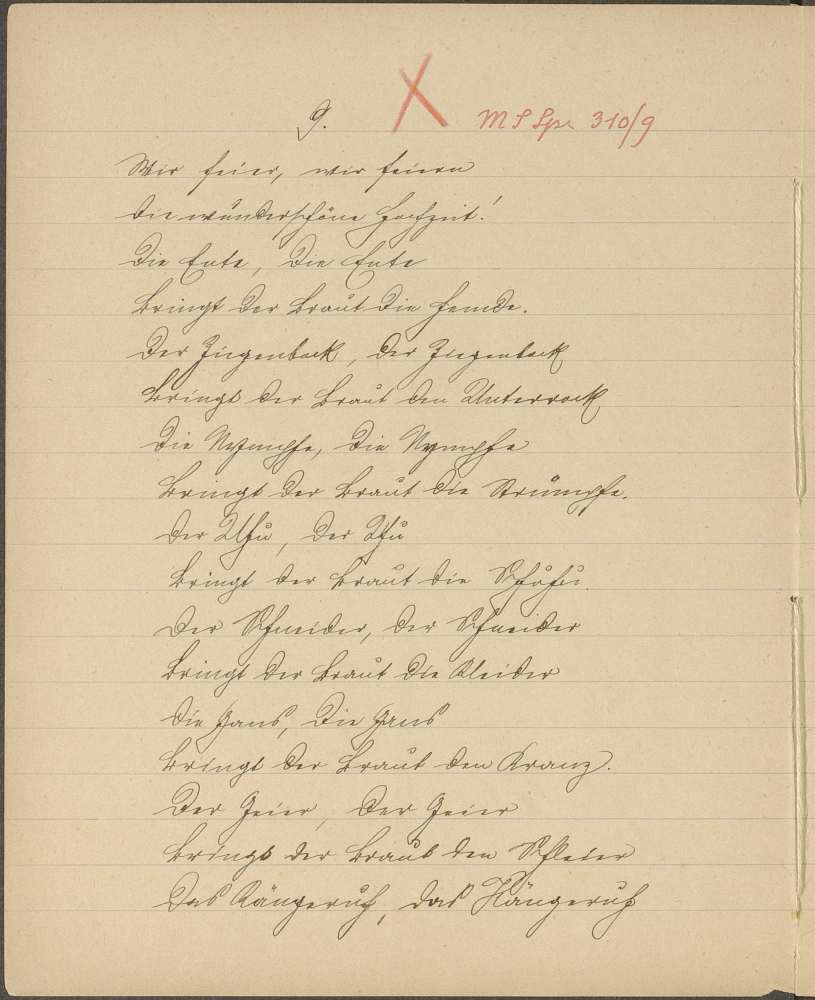 9.
M S Spr 310/9
Wir feier, wir feiern
die wunderschöne Hochzeit!
Die Ente, die Ente
bringt der Braut die Hemde.
Der Ziegenbock, der Ziegenbock
bringt der Braut den Unterrock
Die Nymphe, die Nymphe
bringt der Braut die Strümpfe.
Der Uhu, der Uhu
bringt der Braut die Schuhu
Der Schneider, der Schneider
bringt der Braut die Kleider
Die Gans, die Gans
bringt der Braut den Kranz.
Der Geier, der Geier
bringt der Braut den Schleier
Das Känguruh, das Känguruh